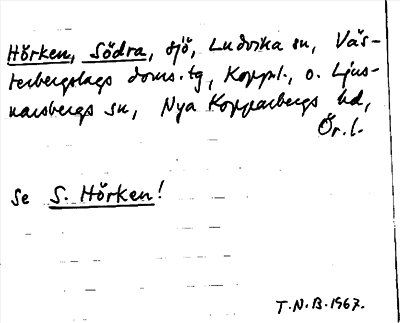 Hörken, Södra, sjö, Ludvika sn, Väs-
terbergslags doms.tg, Koppl., o. Ljus-
narsbergs sn, Nya Kopparbergs hd,
Ör.l.
Se S. Hörken!
T.N.B.1967.